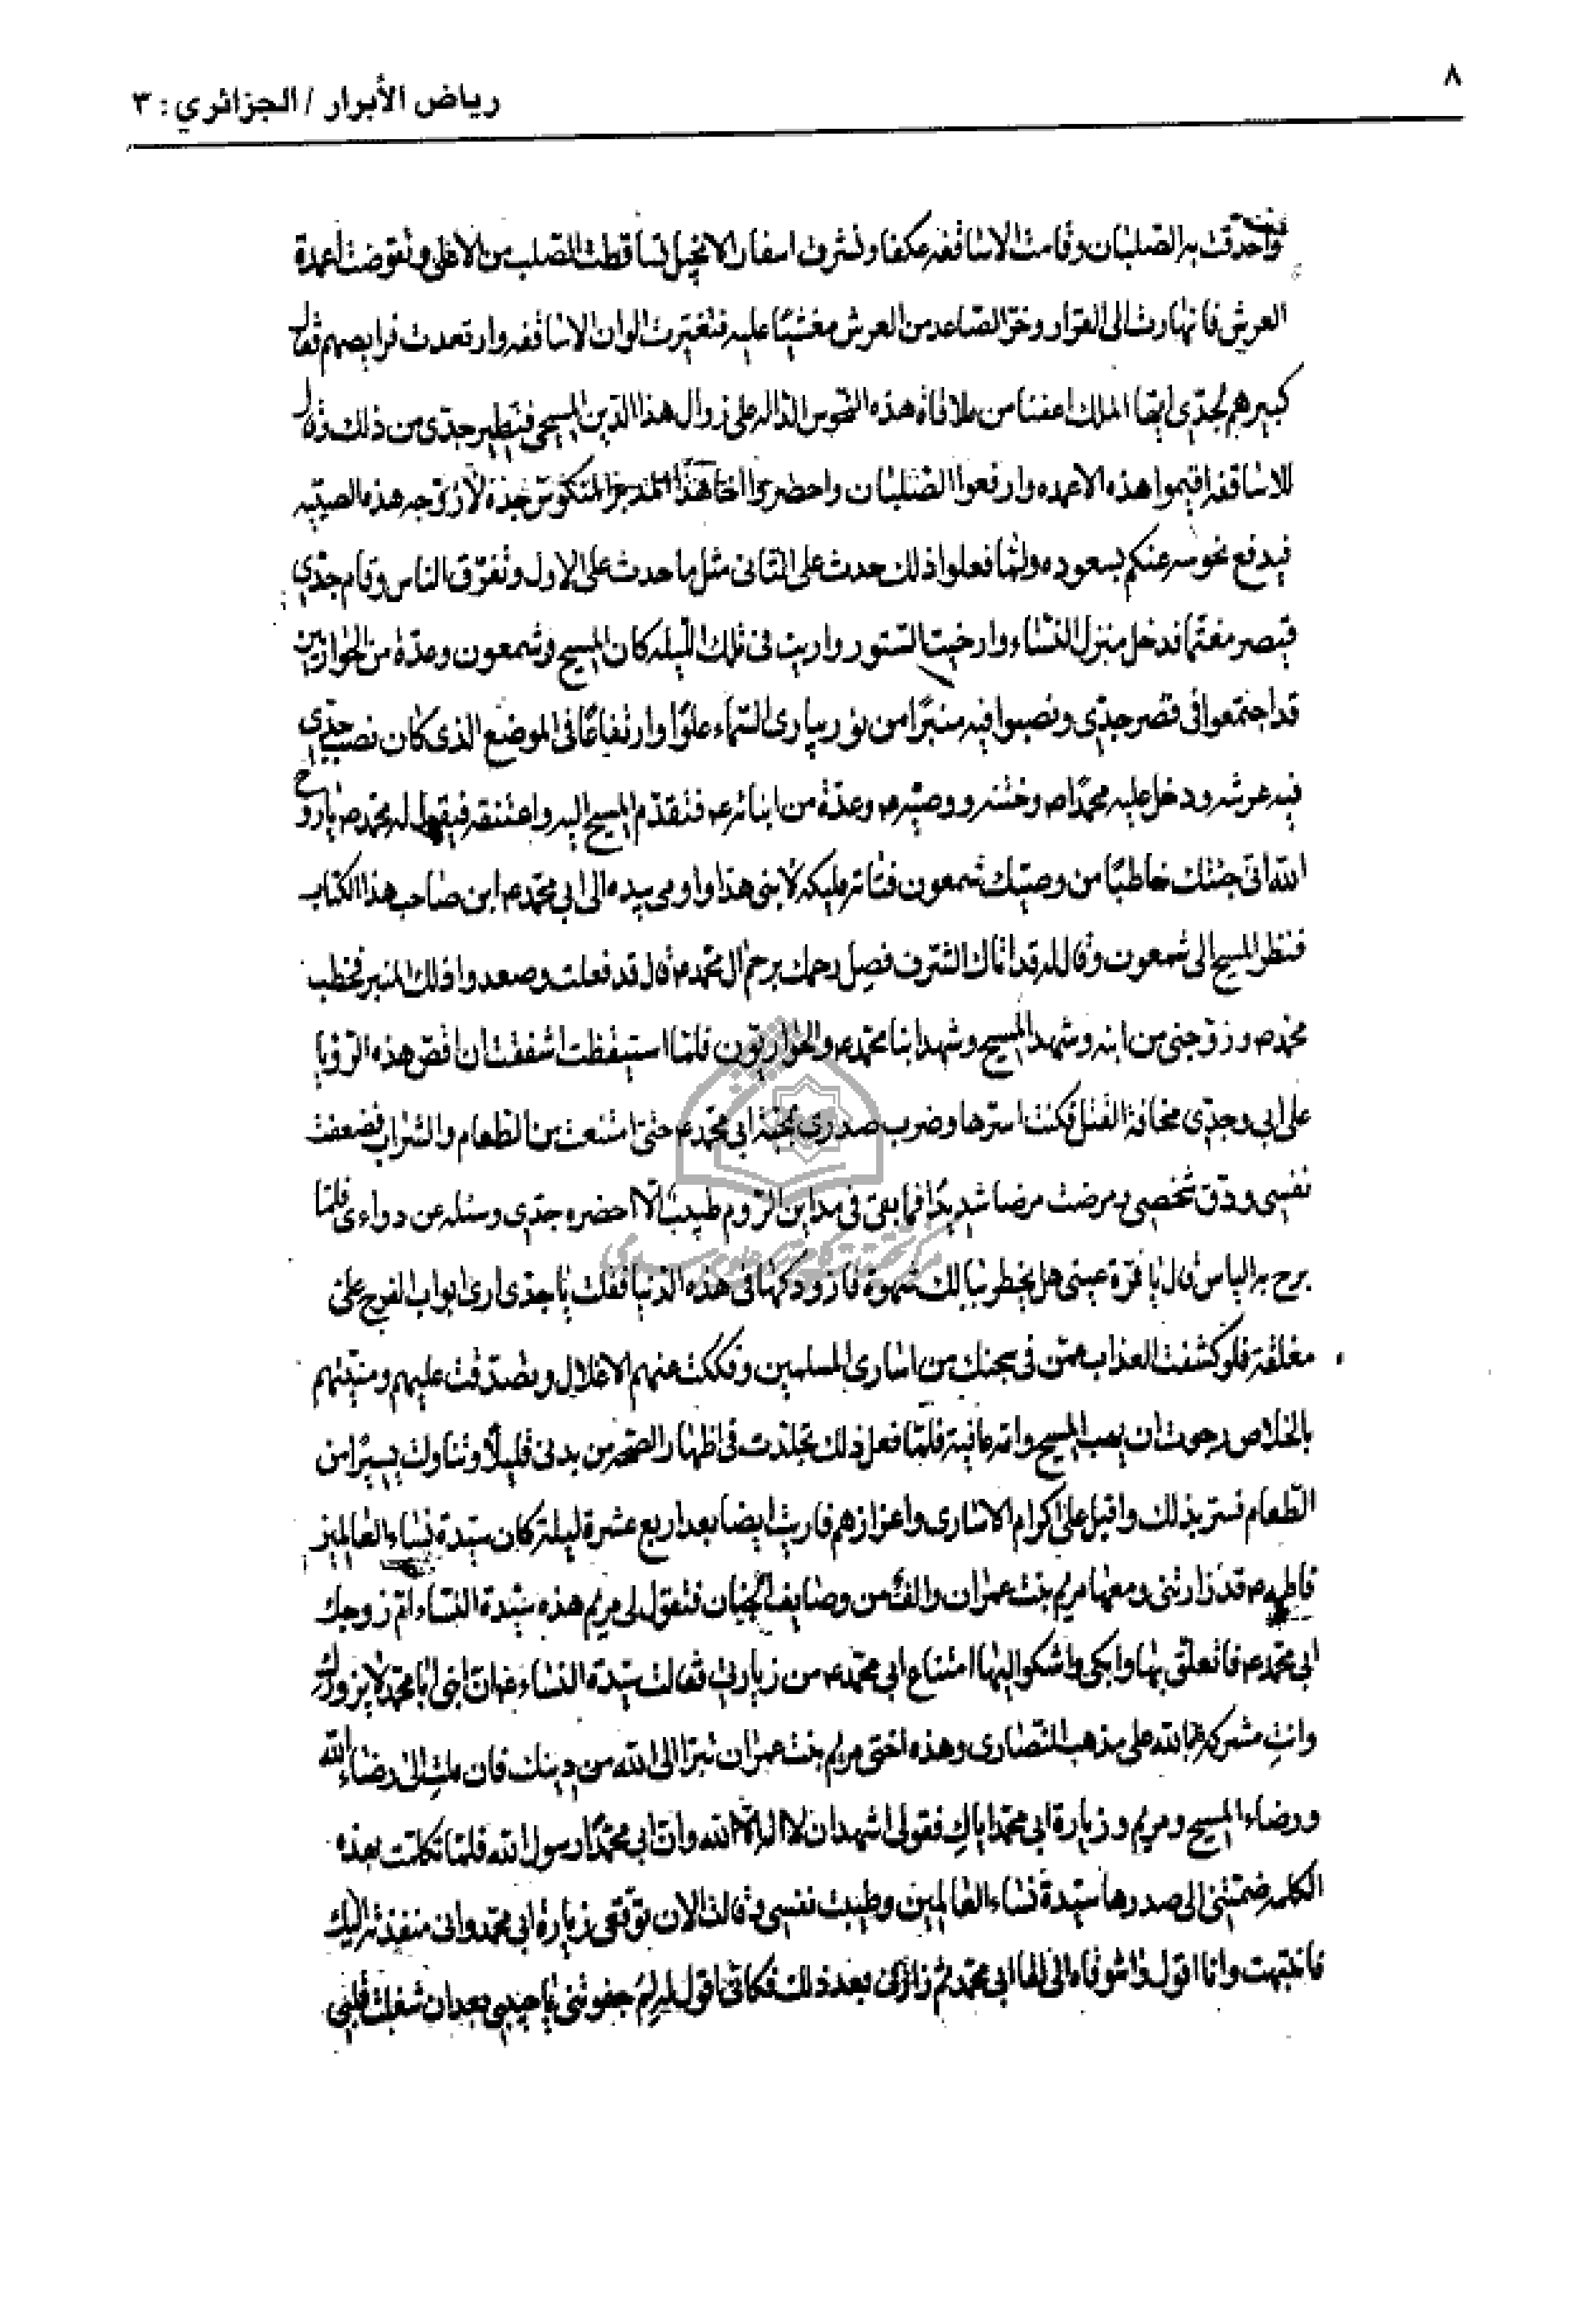 ٨
رياض الأبرار / الجزائري : ٣
واحدقت به الصلبان وقامت الاساقفه عكفا ونشرت اسفار الانجيل تساقطت الصلب من الاعلى وتقوضت اعمدة
العرش فانهارت الى القرار وخرّ الصاعد من العرش مغشيًا عليه فتغيرت الوان الاساقفه وارتعدت فرايصهم فقال
كبيرهم لجدّى ايها الملك اعفنا من ملاقاة هذه النحوس الدالّه على زوال هذا الدين المسيحى فتطيّر جدّى من ذلك وقال
للاساقفه اقيموا هذه الاعمده وارفعوا الصلبان واحضروا اخا هذا المدبر المنكوس جده لازوّجه هذه الصبيّه
فيدفع نحوسه عنكم بسعوده ولمّا فعلوا ذلك حدث على الثانى مثل ما حدث على الاول وتفرّق الناس وقام جدّي
قيصر مغتمّا فدخل منزل النساء وارخيت الستور واريت فى تلك الليله كان المسيح وشمعون وعدّة من الحواريّين
قد اجتمعوا فى قصر جدّي ونصبوا فيه منبرًا من نور يبارى السّماء علوّا وارتفاعًا فى الموضع الذى كان نصب جدّي
فيه عرشه ودخل عليه محمّد ص وختنه ووصيّه ع وعدّة من ابنائه ع فتقدّم المسيح اليه واعتنقه فيقول له محمّد ص ياروح
الله انى جئتك خاطبًا من وصيّك شمعون فتاته مليكه لابنى هذا واومى بيده الى ابى محمّد ع ابن صاحب هذا الكتاب
فنظر المسيح الى شمعون وقال له قد اتاك الشرف فصل رحمك برحم ال محمّد ع قال قد فعلت وصعدوا ذلك المنبر فخطب
محمّد ص وزوّجنى من ابنه وشهد المسيح وشهد ابنا محمّد ع والحواريّون فلمّا استيقظت اشفقت ان اقصّ هذه الرّؤيا
على ابى وجدّي مخافة القتل فكنت اسرّها وضرب صدرى بمحبّة ابى محمّد ع حتى امتنعت من الطعام والشراب فضعفت
نفسى ودقّ شخصى ومرضت مرضا شديدًا فما بقى فى مداين الرّوم طبيب الّا احضره جدّي وسئله عن دواءى فلمّا
برح به الياس قال يا قرّة عينى هل يخطر ببالك شهوة فازودكها فى هذه الدّنيا فقلت يا جدّى ارى ابواب الفرج علىّ
مغلقة فلو كشفت العذاب عمّن فى سجنك من اسارى المسلمين وفككت عنهم الاغلال وتصدّقت عليهم ومنيّتهم
بالخلاص رجوت ان يهب المسيح وامّه عافية فلمّا فعل ذلك تجلّدت فى اظهار الصّحه من بدنى قليلًا وتناولت يسيرًا من
الطّعام فسرّ بذلك واقبل على اكرام الاسارى واعزازهم فاريت ايضا بعد اربع عشرة ليلة كان سيّدة نساء العالمين
فاطمه ع قد زارتنى ومعها مريم بنت عمران والف من وصايف الجنان فتقول لى مريم هذه سيّدة النساء امّ زوجك
ابى محمّد ع فاتعلّق بها وابكى واشكو اليها امتناع ابى محمّد ع من زيارتى فقالت سيّدة النساء ع ان ابنى ابا محمّد لا يزورك
وانتِ مشركة بالله على مذهب النّصارى وهذه اختى مريم بنت عمران تبرا الى الله من دينك فان ملتِ الى رضاء الله
ورضاء المسيح ومريم وزيارة ابى محمّد اياكِ فقولى اشهد ان لا اله الّا الله وانّ ابى محمّدًا رسول الله فلمّا تكلمت بهذه
الكلمه ضمّتنى الى صدرها سيّدة نساء العالمين وطيبت نفسى وقالت الان توقّعى زيارة ابى محمّد وانى منفذته اليك
فانتبهت وانا اقول واشوقاه الى لقا ابى محمّد ثم زارنى بعد ذلك فكانى اقول له لم جفوتنى يا حبيبى بعد ان شغلت قلبى